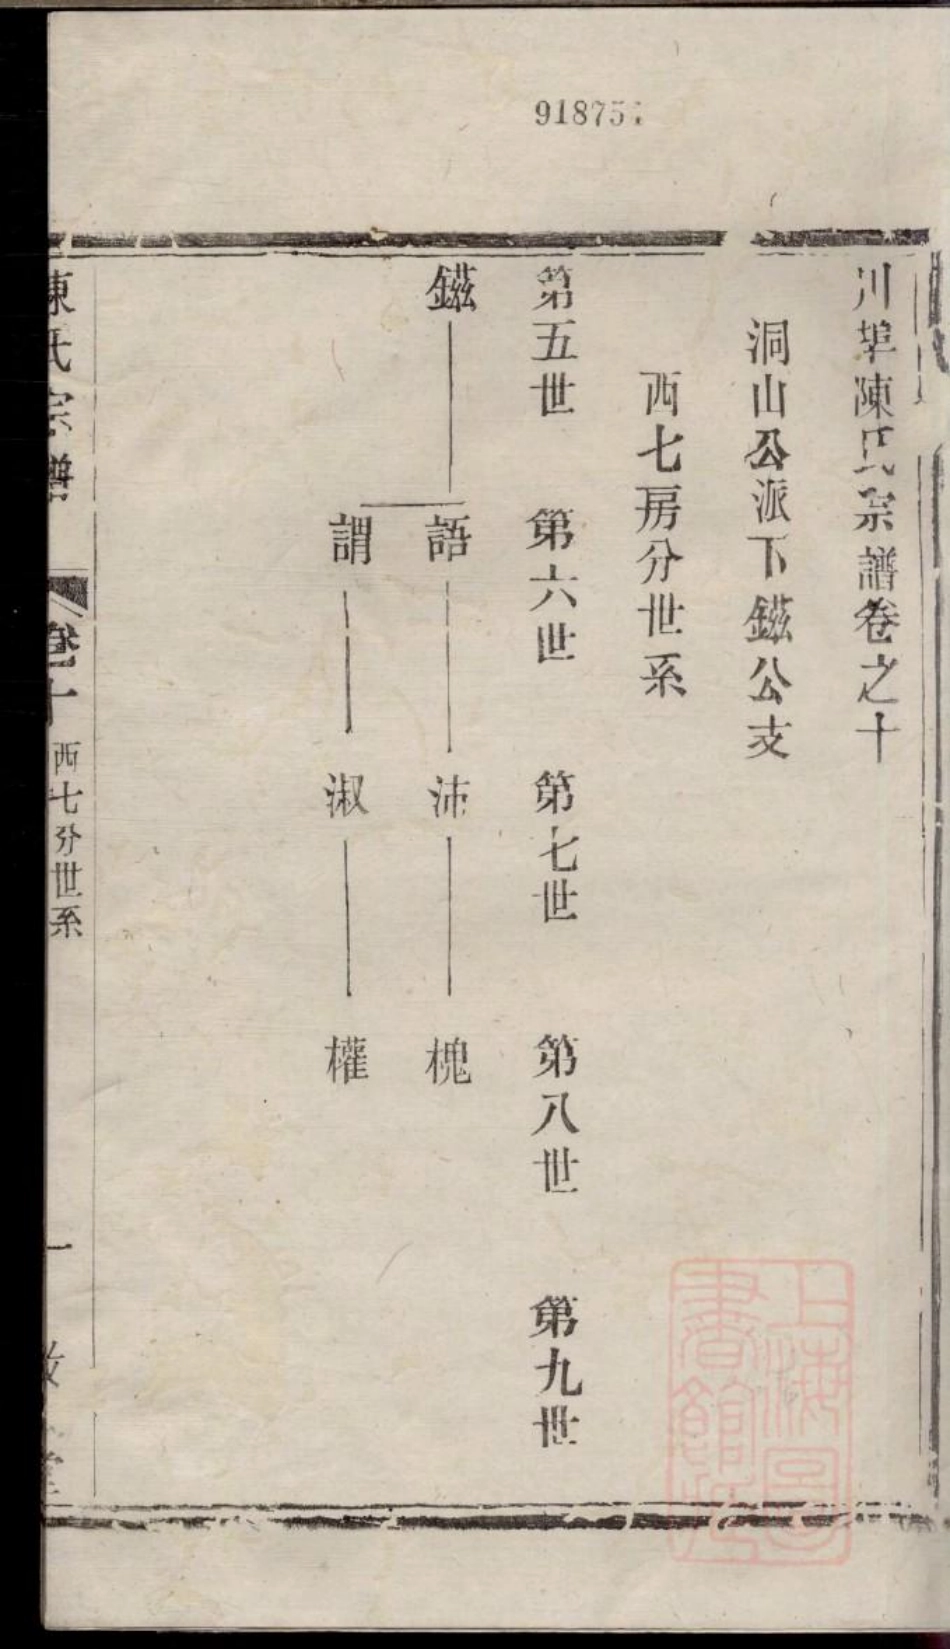 918757
川埠陳氏宗譜卷之十
洞山公派下鎡公支
西七房分世系
第五世 第六世 第七世 第八世 第九世
鎡 語 沛 槐
謂 淑 權
陳氏宗譜 卷十 西七分世系 一
上海圖書館藏